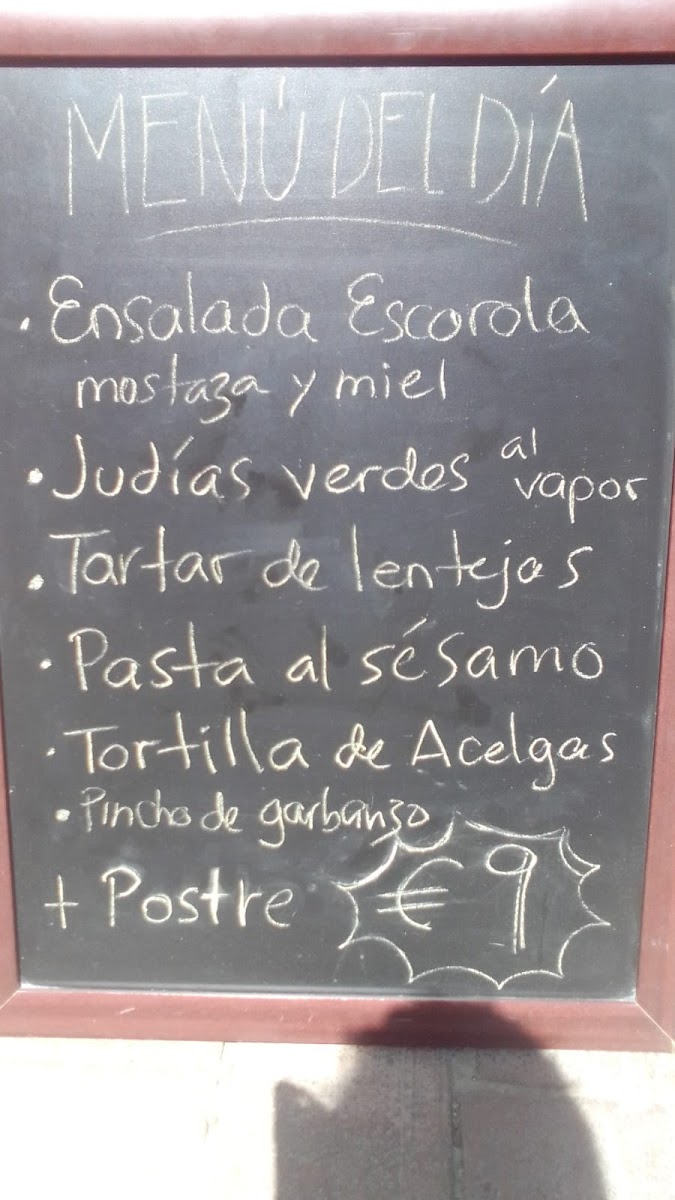 MENÚ DEL DÍA
• Ensalada Escorola
mostaza y miel
• Judías verdes al vapor
• Tartar de lentejas
• Pasta al sésamo
• Tortilla de Acelgas
• Pincho de garbanzo
+ Postre €9